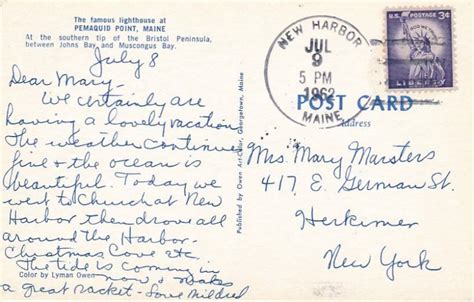 The famous lighthouse at
PEMAQUID POINT, MAINE
At the southern tip of the Bristol Peninsula,
between Johns Bay and Muscongus Bay.
July 8
Dear Mary-
We certainly are
having a lovely vacation
The weather continues
fine & the ocean is
beautiful. Today we
went to Church at New
Harbor then drove all
around the Harbor-
Christmas Cove etc.
The tide is coming in
now & makes
a great racket - Love Mildred
Color by Lyman Owen
Published by Owen Art-Color, Georgetown, Maine
NEW HARBOR
JUL
9
5 PM
1962
MAINE
U.S. POSTAGE 3¢
LIBERTY
POST CARD
Address
Mrs. Mary Marsters
417 E. German St.
Herkimer
New York